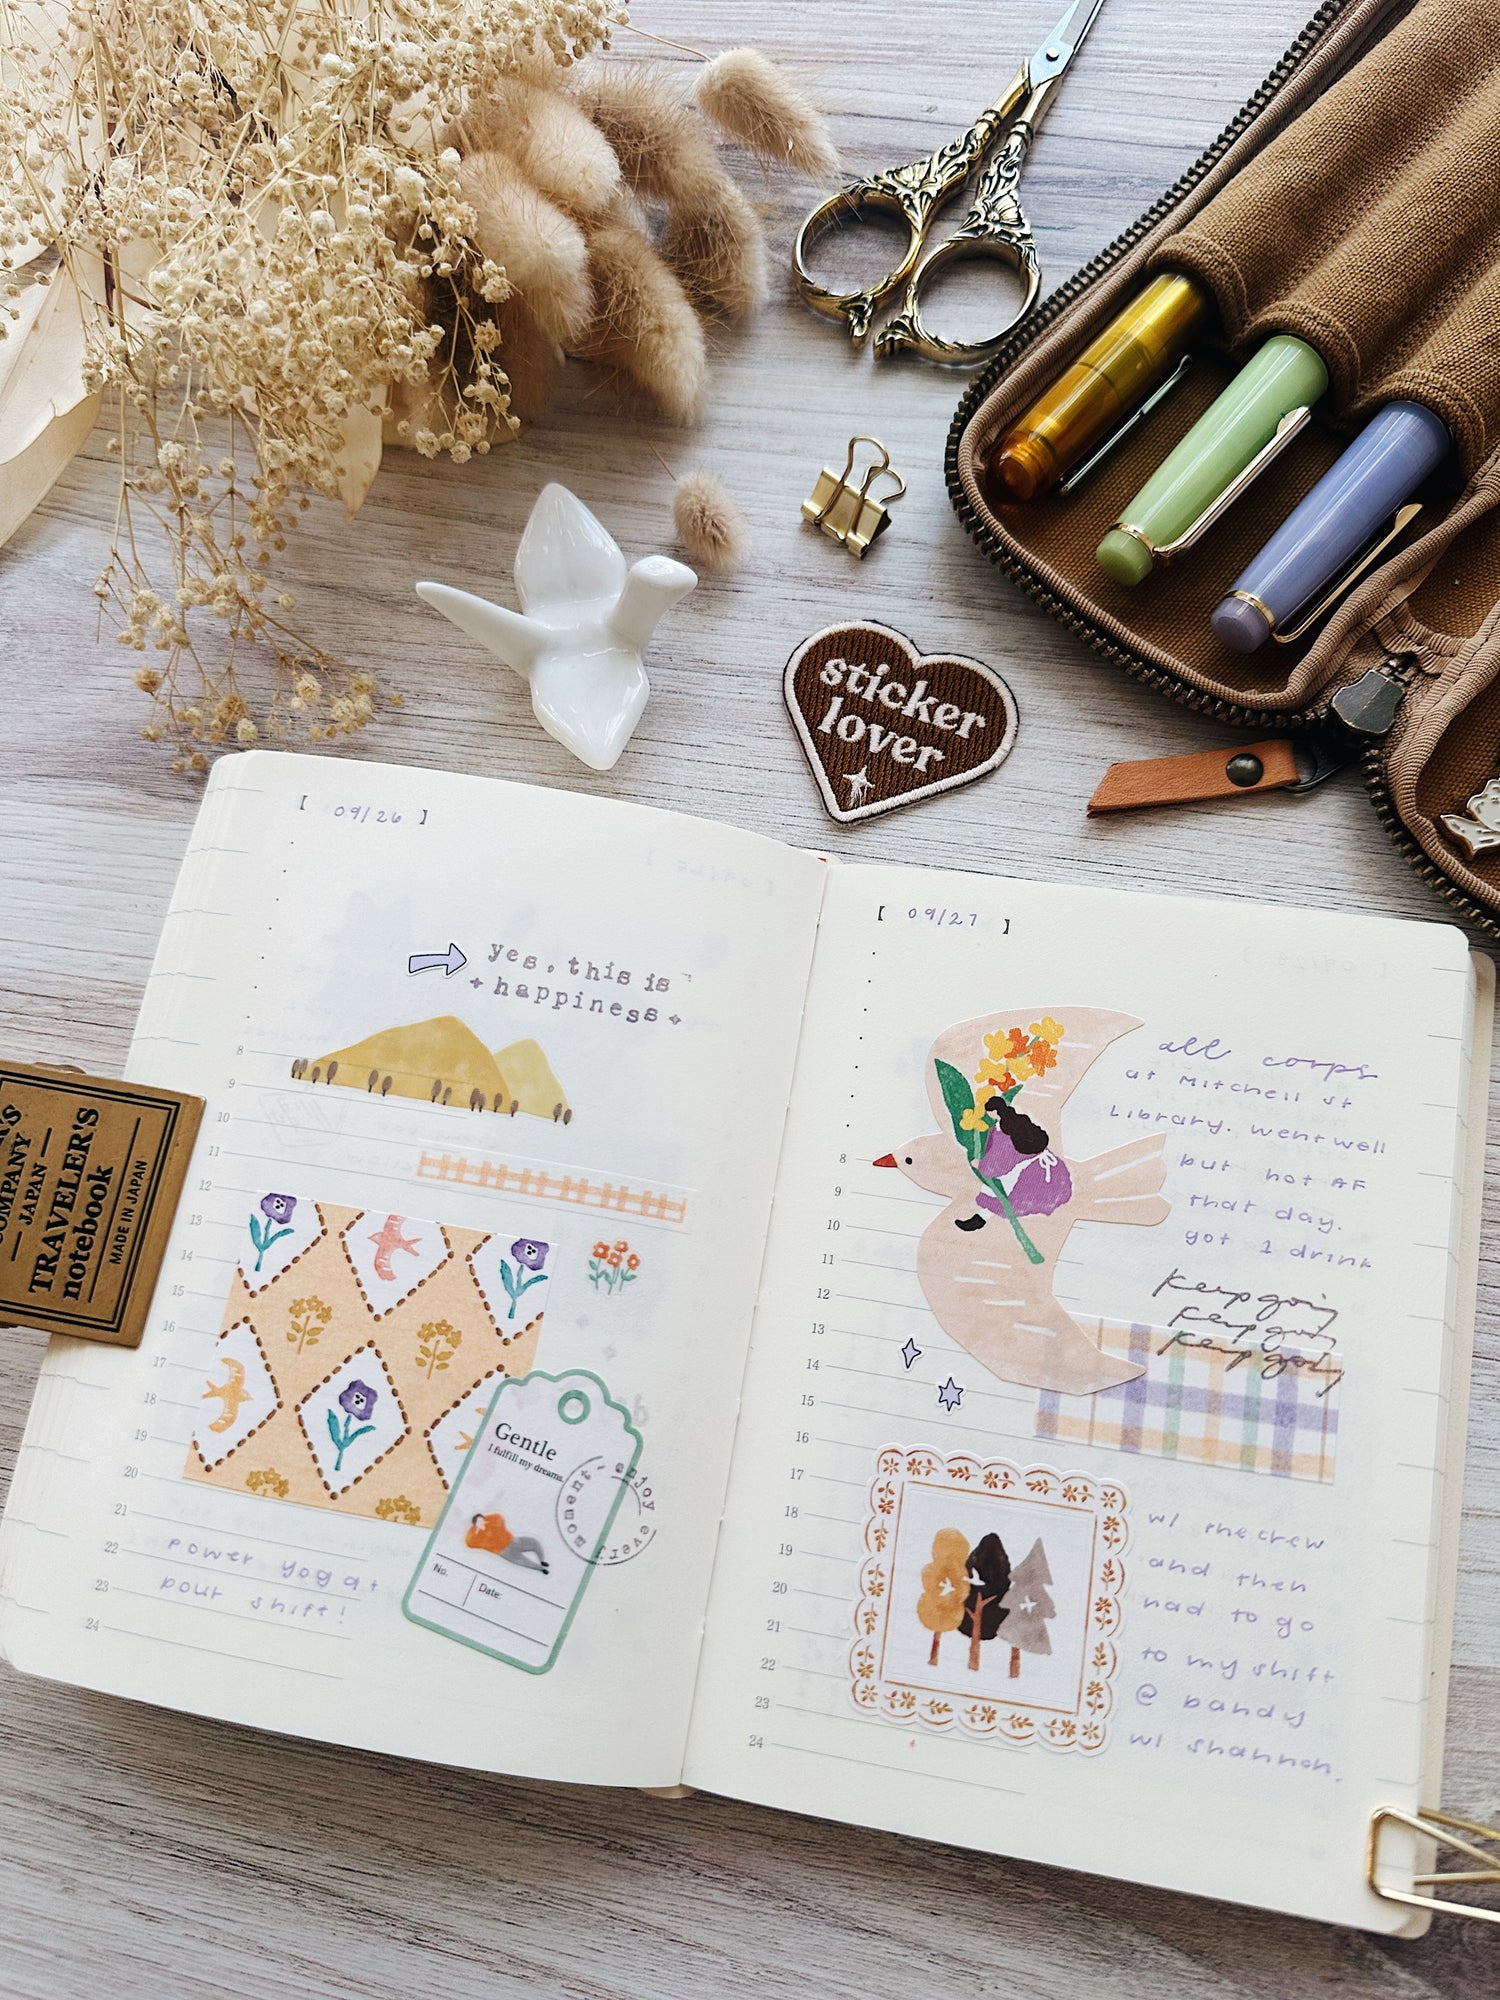 sticker
lover
【 09/26 】
yes, this is
happiness
8
9
10
11
12
13
14
15
16
17
18
19
20
21
22
23
24
Gentle
I fulfill my dreams.
No.
Date:
enjoy every moment
power yoga +
pour shift!
COMPANY
JAPAN
TRAVELER'S
notebook
MADE IN JAPAN
【 09/27 】
all corps
at Mitchell st
Library. went well
but hot AF
that day.
got 1 drink
keep going
keep going
keep going
8
9
10
11
12
13
14
15
16
17
18
19
20
21
22
23
24
w/ the crew
and then
had to go
to my shift
@ bandy
w/ shannon.